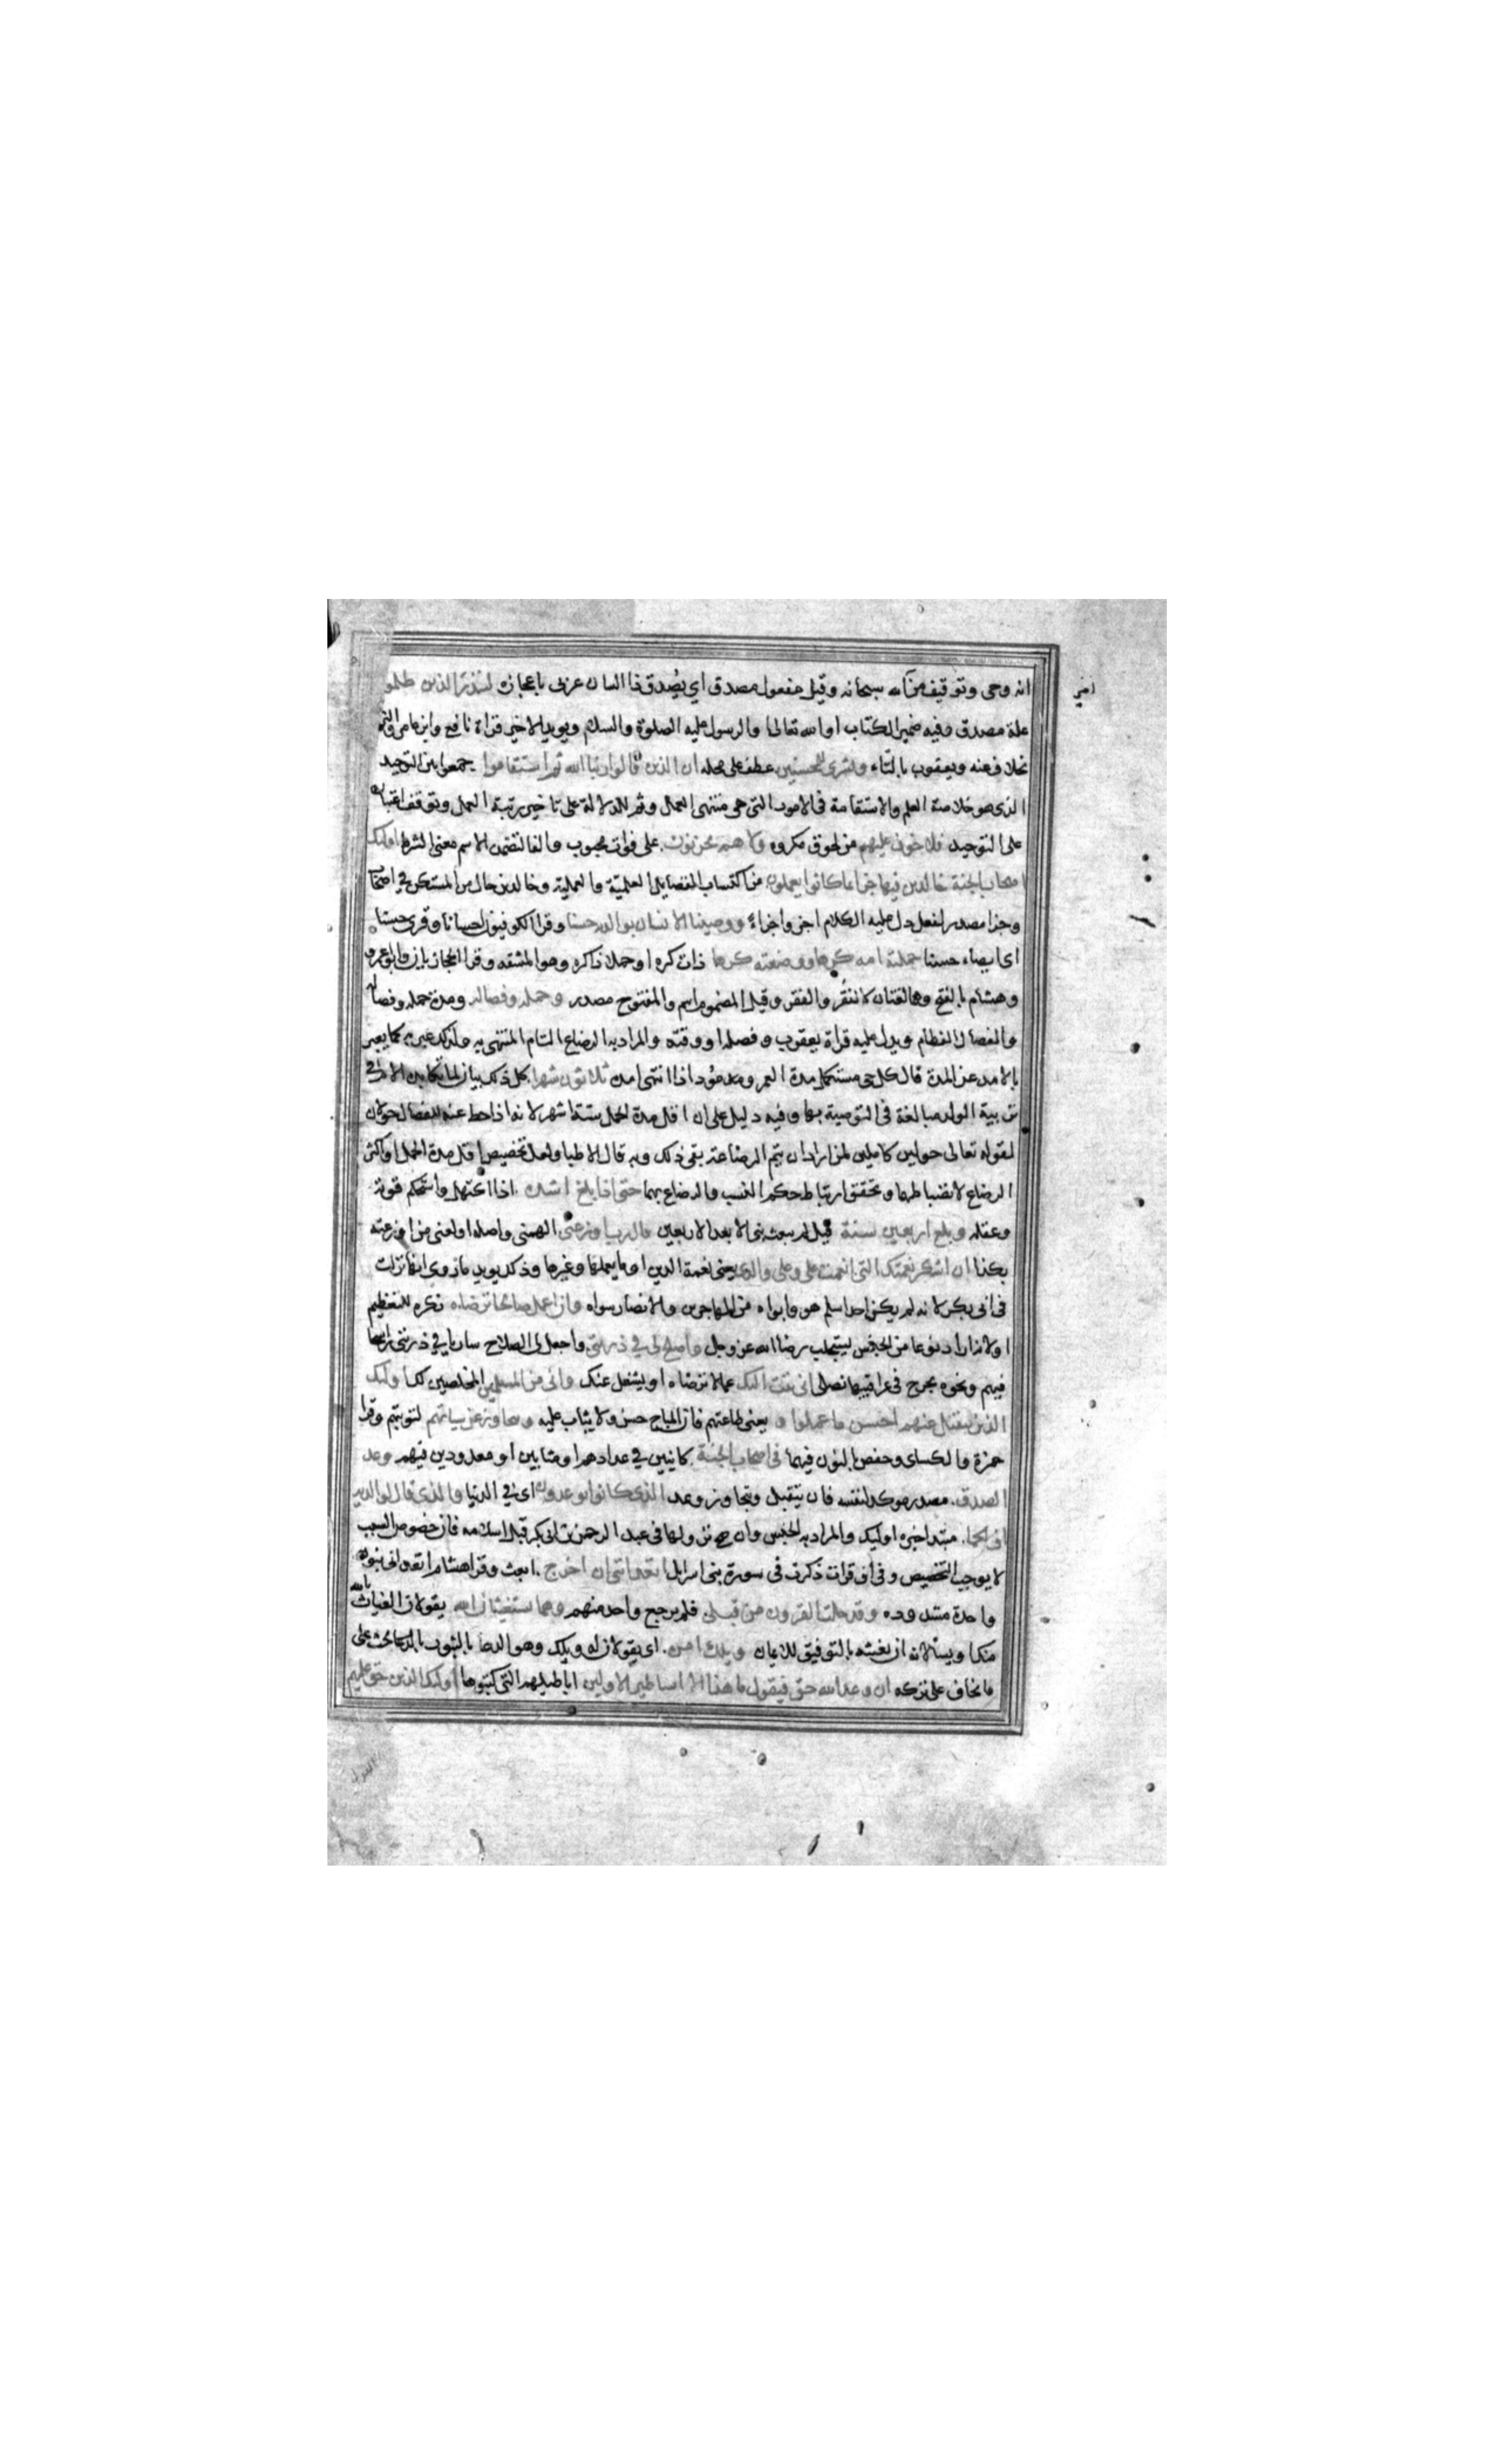 انه وحى وتوقيف من الله سبحانه وقيل مفعول مصدق اي يصدق ذا لسان عربى باعجازه لتنذر الذين ظلموا
علة مصدق وفيه ضمير الكتاب او الله تعالى او الرسول عليه الصلوة والسلام ويويد الاخير قراة نافع وابن عامر والبزى
بخلاف عنه ويعقوب بالتاء وبشرى للمحسنين عطف على محله ان الذين قالوا ربنا الله ثم استقاموا جمعوا بين التوحيد
الذى هو خلاصة العلم والاستقامة فى الامور التى هى منتهى العمل وثم للدلالة على تاخير رتبة العمل وتوقف اعتباره
على التوحيد فلا خوف عليهم من لحوق مكروه ولا هم يحزنون على فوات محبوب والفا لتضمن الاسم معنى الشرط اوليك
اصحاب الجنة خالدين فيها جزا بما كانوا يعملون من اكتساب الفضايل العلمية والعملية وخالدين حال من المستكن فى اصحاب
وجزا مصدر لفعل دل عليه الكلام اى جزوا جزاء ووصينا الانسان بوالديه حسنا وقرا الكوفيون احسانا وقرى حسنا
اى ايصاء حسنا حملته امه كرها ووضعته كرها ذات كره او حملا ذا كره وهو المشقه وقرا الحجازيان وابو عمرو
وهشام بالفتح وهما لغتان كالفُقر والفقر وقيل المضموم اسم والمفتوح مصدر وحمله وفصاله ومدة حمله وفصاله
والفصال الفطام ويدل عليه قراة يعقوب وفصله او وقته والمراد به الرضاع التام المنتهى به ولذلك عبر به كما يعبر
بالامد عن المدة قال كل حى مستكمل مدة العمر ومود اذا انتهى امده ثلاثون شهرا كل ذلك بيان لما تكابده الام فى
تربية الولد مبالغة فى التوصية بها وفيه دليل على ان اقل مدة الحمل ستة اشهر لانه اذا حط عنه للفصال حولان
لقوله تعالى حولين كاملين لمن اراد ان يتم الرضاعة بقى ذلك وبه قال الاطبا ولعل تخصيص اقل مدة الحمل واكثر
الرضاع لانضباطهما وتحقق ارتباط حكم النسب والرضاع بهما حتى اذا بلغ اشده اذا اكتهل واستحكم قوته
وعقله وبلغ اربعين سنة قيل لم يبعث نبى الا بعد الاربعين قال رب اوزعنى الهمنى واصله اولعنى من اوزعته
بكذا ان اشكر نعمتك التى انعمت على وعلى والدى يعنى نعمة الدين او ما يعمها وغيرها وذلك يويد ما روى انها نزلت
فى ابى بكر لانه لم يكن احد اسلم هو وابواه من المهاجرين والانصار سواه وان اعمل صالحا ترضاه نكره للتعظيم
او لانه اراد نوعا من الجنس يستجلب رضا الله عز وجل واصلح لى فى ذريتى واجعل لى الصلاح ساريا فى ذريتى راسخا
فيهم ونحوه يجرح فى عراقيبها نصلى انى تبت اليك عما لا ترضاه او يشغل عنك وانى من المسلمين المخلصين لك اوليك
الذين يتقبل عنهم احسن ما عملوا يعنى طاعتهم فان المباح حسن ولا يثاب عليه ويتجاوز عن سياتهم لتوبتهم وقرا
حمزة والكساى وحفص بالنون فيهما فى اصحاب الجنة كاينين فى عدادهم او مثابين او معدودين فيهم وعد
الصدق مصدر موكد لنفسه فان يتقبل ويتجاوز وعد الذى كانوا يوعدون اى فى الدنيا والذى قال لوالديه
اف لكما مبتدا خبره اوليك والمراد به الجنس وان صح نزولها فى عبد الرحمن بن ابى بكر قبل اسلامه فان خصوص السبب
لا يوجب التخصيص وفى اف قرات ذكرت فى سورة بنى اسرايل اتعداننى ان اخرج ابعث وقرا هشام اتعدانى بنون
واحدة مشدوده وقد خلت القرون من قبلى فلم يرجع واحد منهم وهما يستغيثان الله يقولان الغياث بالله
منك او يسالانه ان يغيثه بالتوفيق للايمان ويلك امن اى يقولان له ويلك وهو الدعا بالثبور بالحث على
ما يخاف على تركه ان وعد الله حق فيقول ما هذا الا اساطير الاولين اباطيلهم التى كتبوها اوليك الذين حق عليهم